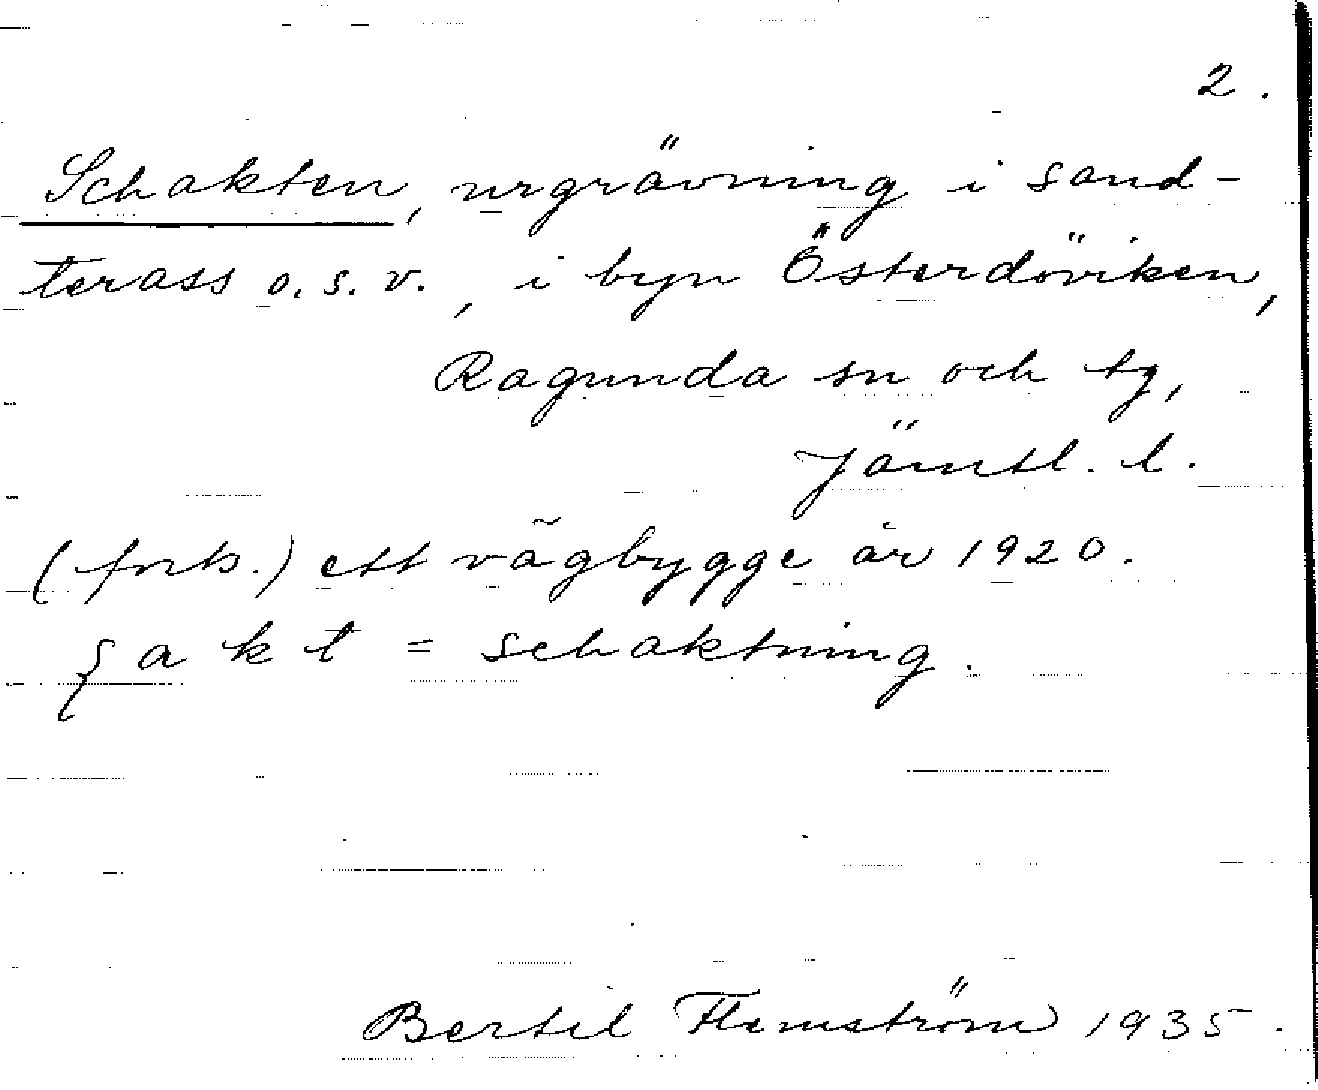 2.
Schakten, urgrävning i sand-
terass o.s.v., i byn Österdöviken,
Ragunda sn och tg,
Jämtl. l.
(forts.) ett vägbygge år 1920.
ʃ a k t = schaktning.
Bertil Flemström 1935.